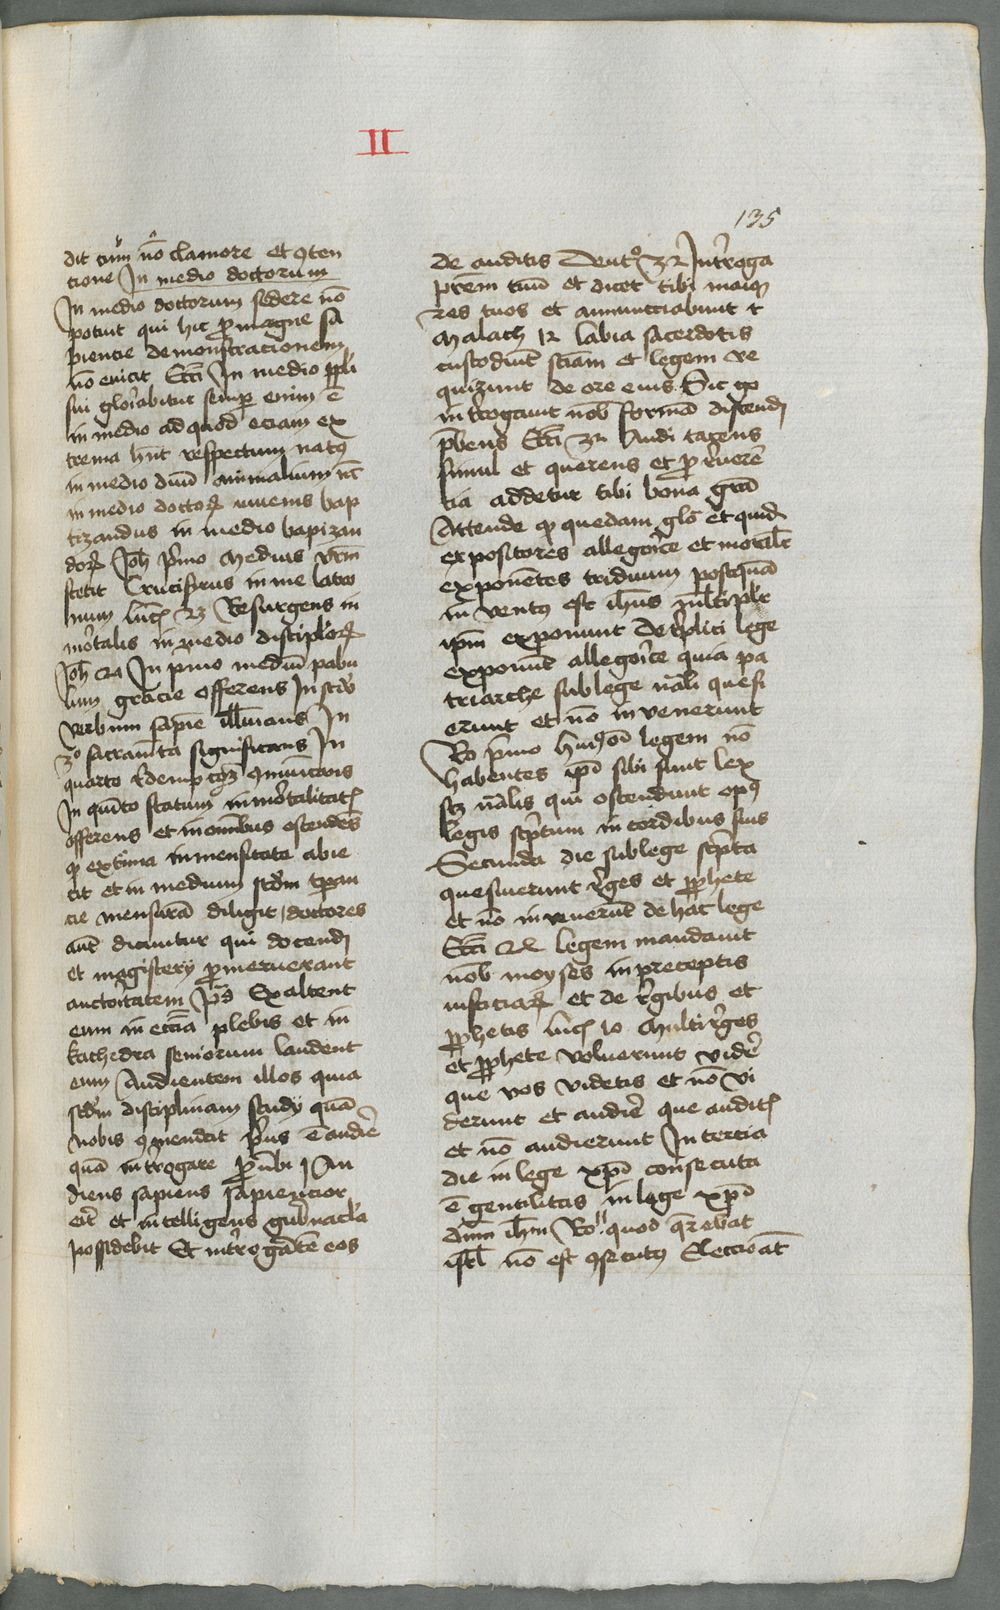 II
135
dit cum nō clamore et ꝯten
cione In medio doctorum
In medio doctorum sedere nō
potuit qui hic ꝓ magne sa
piencie demonstracionem
nō euicit Ecci In medio ppli
sui gloriabitur semꝑ enim ē
in medio ad quod eciam ex
trema hn̄t respectum natꝰ
in medio duū animalium
in medio doctoꝝ iuuenis bap
tizandus in medio bapizan
doꝝ Joh primo Medius vr̄m
stetit Crucifixus in me latro
num Luc 23 Resurgens in
mortalis in medio discipuloꝝ
Joh In primo mediū pabu
lum gracie offerens In sc̄do
verbum sapie illuminans In
3o sacramenta significans In
quarto redempcōeꝫ ꝯmunicans
In quīto statum inmortalitatꝭ
offerens et in omnibus ostendēs
ꝙ extima inmensitate abie
cit et in medium scd̄m tꝑan
cie mensurā diligit doctores
autem dicuntur qui docendi
et magistery ꝓmeruerant
auctoritatem Ps Exaltent
eum in ecclia plebis et in
kathedra seniorum laudent
eum Audientem illos quia
scd̄m disciplinam study quā
nobis ꝯmendat prius ē audire
quā interrogare ꝓuerbi 1 Au
diens sapiens sapiencior
erit et intelligens gubnacula
possidebit Et interrogātē eos
de auditis Deutꝰ 32 Interroga
prem tuū et dicet tibi maio
res tuos et annuncciabunt t
Malach 12 labia sacerdotis
custodiūt sciam et legem re
quirunt de ore eius Sic go
interrogauit nob formā discendi
p̄bens Ecci 32 Audi tacens
simul et querens et ꝓ reueren
cia addetur tibi bona gra
Attende ꝙ quedam glo et quid
expositores allegorice et moralit
exponētes triduum postquā
inventꝰ est ihus multiplr
ipm exponunt De triplici lege
exponūt allegorice quia pa
triarche sub lege nāli quesi
erunt et nō invenerunt
Ro primo legem nō
habentes ipi sibi sunt lex
scꝫ nālis qui ostendunt opꝰ
legis scptum in cordibus suis
Secunda die sub lege scpta
quesiuerunt reges et ꝓphete
et nō invenerūt de hac lege
Ecci legem mandauit
nob moyses in preceptis
iusticiaꝝ et de regibus et
ꝓphetis Luc 10 Multi reges
et ꝓphete voluerunt videre
que vos videtis et nō vi
derunt et audire que auditꝭ
et nō audierunt In tercia
die in lege xpi consecuta
ē gentilitas in lege xpi
dn̄m ihm Ro 11 quod q̄rebat
isrl nō est ꝯsecutꝰ Eleccio aūt